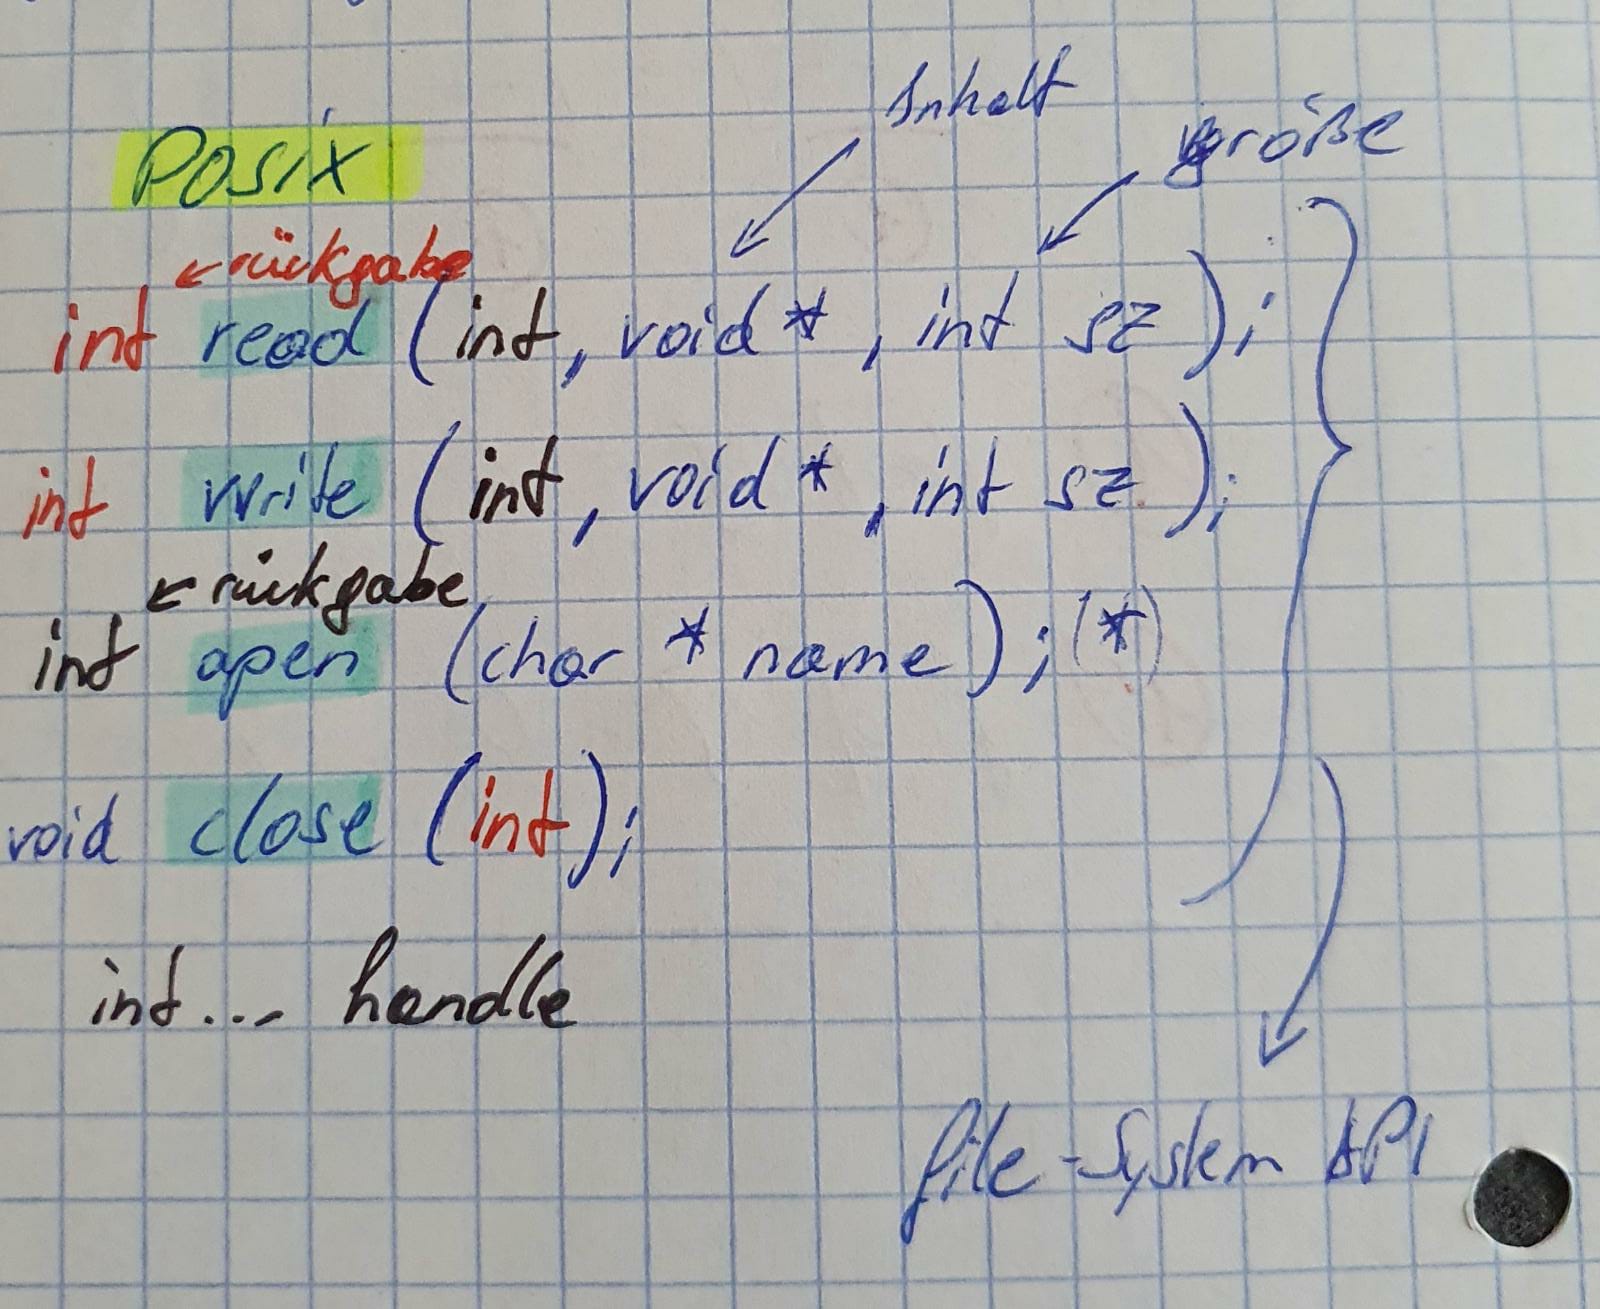 Inhalt
größe
Posix
← rückgabe
int read (int, void *, int sz);
int write (int, void *, int sz);
← rückgabe
int open (char * name); (*)
void close (int);
int... handle
file-System API